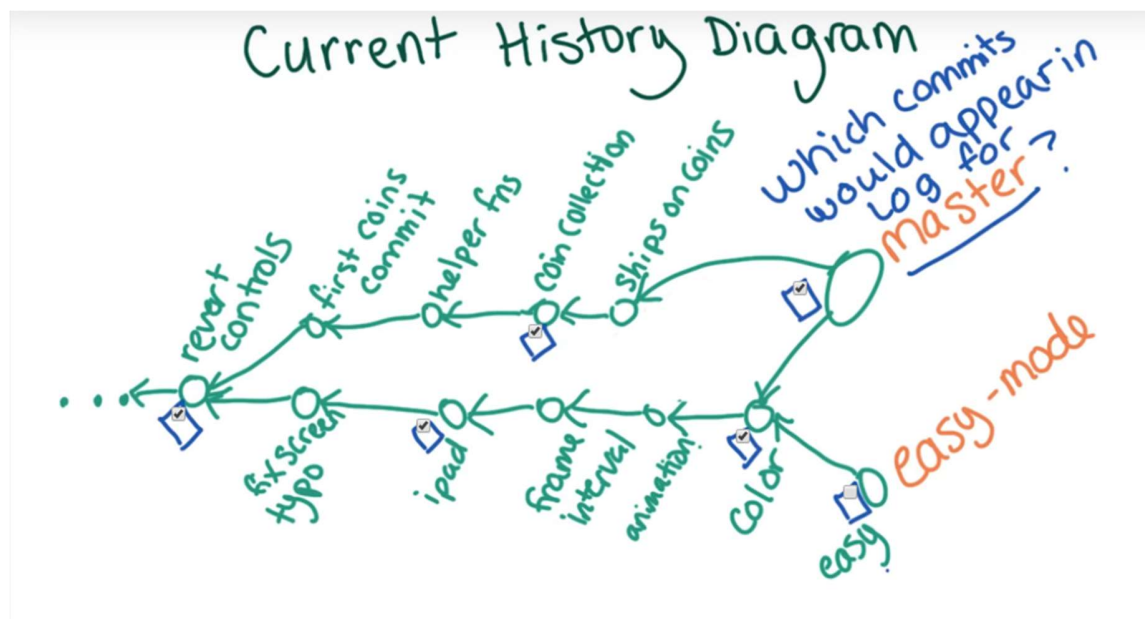 Current History Diagram
Which commits
would appear in
log for
master?
revert
controls
first coins
commit
helper fns
coin collection
ships on coins
fix screen
typo
ipad
frame
interval
animation
color
easy
easy-mode